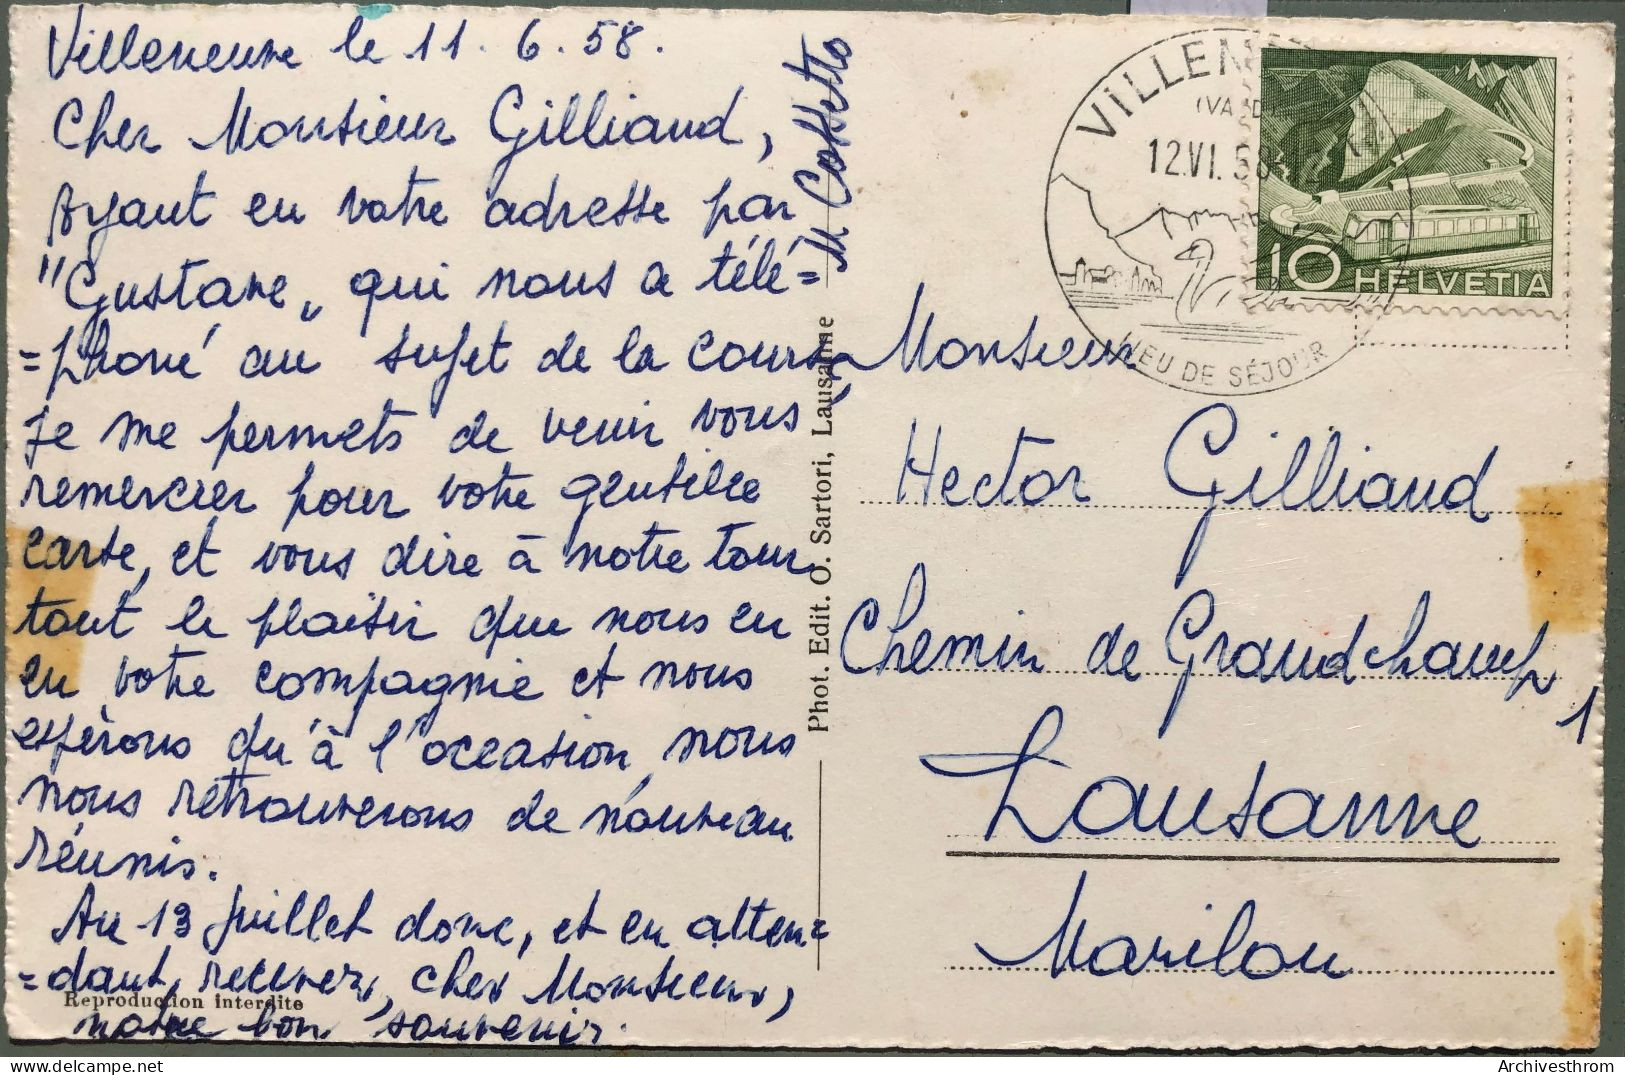 Villeneuve le 11. 6. 58.
Cher Monsieur Gilliand,
Ayant eu votre adresse par
"Gustave" qui nous a télé=
=phoné au sujet de la course,
Je me permets de venir vous
remercier pour votre gentille
carte, et vous dire à notre tour
tout le plaisir que nous eu
en votre compagnie et nous
espèrons qu'à l'occasion nous
nous retrouverons de nouveau
réunis.
Au 13 juillet donc, et en atten=
=dant, recevez, cher Monsieur,
notre bon souvenir.
Reproduction interdite
M
Phot. Edit. O. Sartori, Lausanne
VILLENE
(VAUD)
12.VI. 58
LIEU DE SÉJOUR
10 HELVETIA
Monsieur
Hector Gilliand
Chemin de Grandchamp
1
Lausanne
Marilou
Archivesthrom